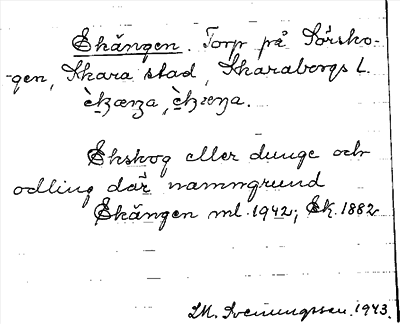 Ekängen. Torp på Sörsko-
gen, Skara stad, Skarabergs l.
Ekskog eller dunge och
odling där namngrund
Ekängen ml. 1942; Ek. 1882
Svenungsson. 1943.